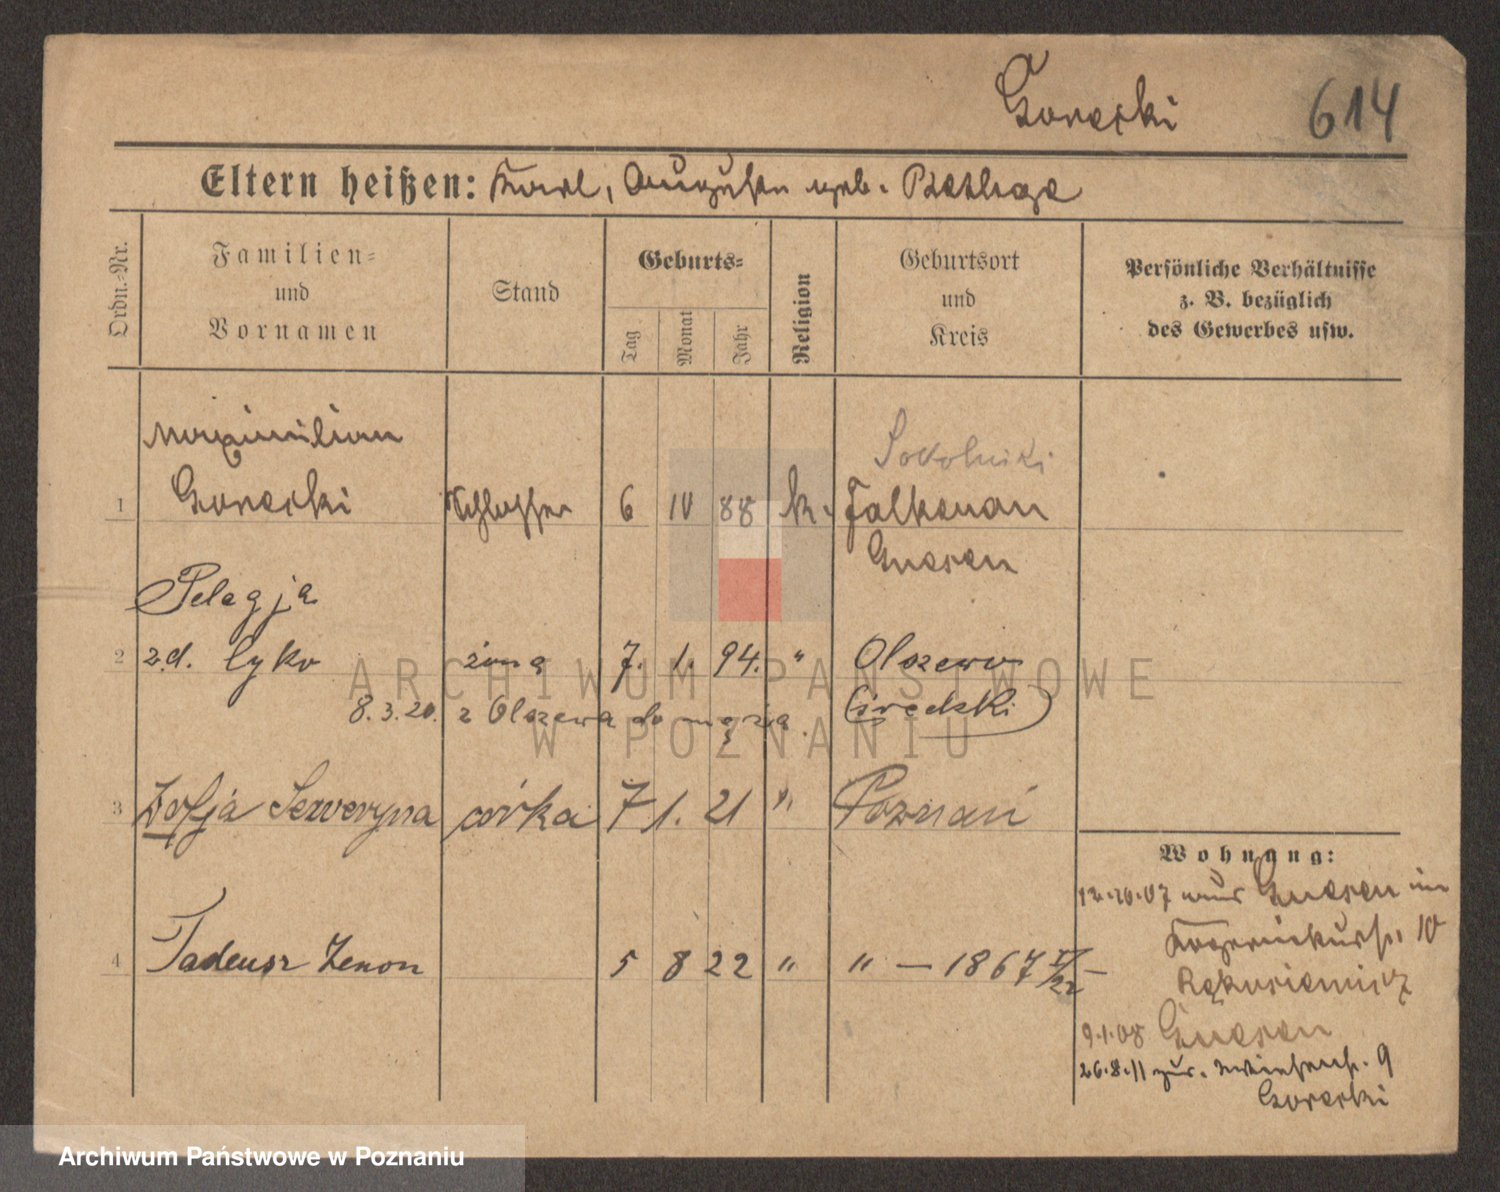 Gorecki 614
Eltern heißen: Karl, Augusta geb. Przekaza
Ordn.-Nr.
Familien-
und
Vornamen
Stand
Geburts-
Tag
Monat
Jahr
Religion
Geburtsort
und
Kreis
Persönliche Verhältnisse
z. B. bezüglich
des Gewerbes usw.
Maximilian
Sokolniki
1 Gorecki Schlosser 6 IV 88 k. Falkenau
Gnesen
Pelagja
2 z.d. Łyko żona 7. 1. 94. " Olszewo
8.3.20. z Olszewa do męża. (Średzki)
3 Zofja Seweryna córka 7 1. 21 " Poznań
4 Tadeusz Zenon 5 8 22 " " — 1867
Wohnung:
12.10.07 aus Gnesen in
10
9.1.08 Gnesen
26.8.11 zur. Wiesenstr. 9
Gorecki
ARCHIWUM PAŃSTWOWE
W POZNANIU
Archiwum Państwowe w Poznaniu